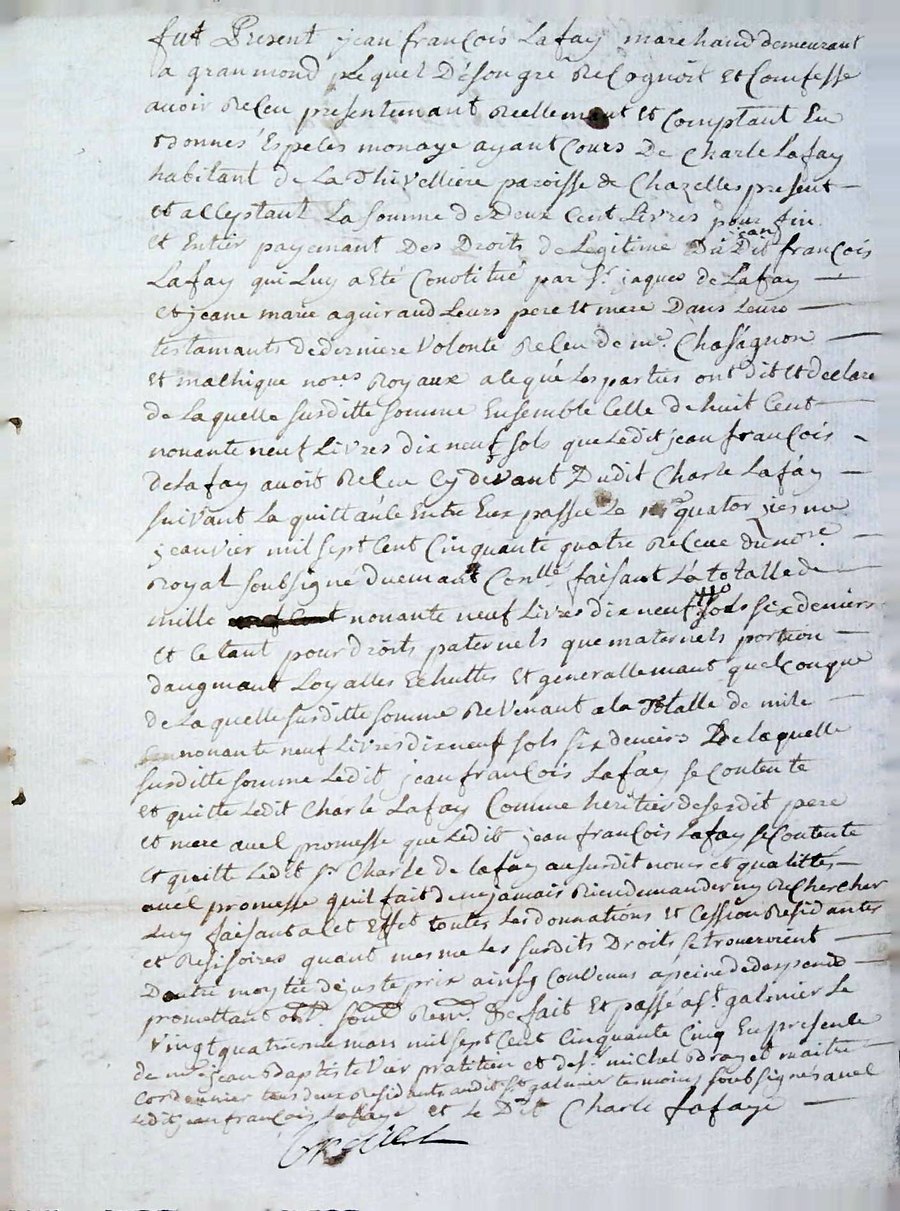 fut Present jean françois Lafay marchand demeurant
a granmond Lequel Desongré Recognoit et Comfesse
avoir Receu presentemant Reellemant et Comptant En
donnes Espeles monoye ayant Cours De Charle Lafay
habitant de La Thivelliere paroisse de Chazelles present
et alleptant La somme de Deux Cent Livres pour fin
jean
et Entier payemant Des Droits de Legitime Du Dit françois
Lafay qui Luy a Eté Constitué par Sr. jaques de Lafay
et jeane marie aguiraud Leurs pere et mere Dans Leurs
testamants de derniere volonté Receu de me. Chasagnon
et malhique nores Royaux aleque Les parties ont dit et declare
de Laquelle susditte somme Ensemble Celle de huit Cent
nonante neuf Livres dix neuf sols que Ledit jean françois
de Lafay avoit Releu Cy devant Dudit Charle Lafay
suivant La quittanle Entre Eux passée Le quatorziesme
jeanvier mil sept Cent Cinquante quatre Receue dunore
Royal soubsigné duemant Conllé faisant La totalle de
mille nonante neuf Livres dix neuf sols six deniers
et Ce tant pour droits paternels que maternels portion
daugmant Loyalles Echuttes et generallemant quelConque
de Laquelle susditte somme Revenant a la Totalle de mile
nonante neuf Livres dix neuf sols six deniers De laquelle
susditte somme Ledit jean françois Lafay se Contente
et quitte Ledit Charle Lafay Comme heritier desesdit pere
et mere avel promesse que Ledit jean françois Lafay se Contente
et quitt Ledit Sr. Charle de lafay au susdit noms et qualittés
avel promesse quil fait de ne jamais Rien demander ny Rechercher
Luy faisant alet Effet toutes Les donnations et Cession Residantes
et Resisoires quant mesme Les susdits Droits se trouveroient
Doutre moytié de juste prix ainsy Convenus a peine de despend
promettant obt. soud. Rend. fait et passé a St. galmier Le
vingt quatriesme mars mil sept Cent Cinquante Cinq En presente
de me. jean Baptiste Vier pratitien et de Sr. michel Brayet maitre
Cordonnier tous deux Residants audit St galmier tesmoins soubsignés avel
Ledit jean françois Lafaye et Le Dit Charle Lafaye